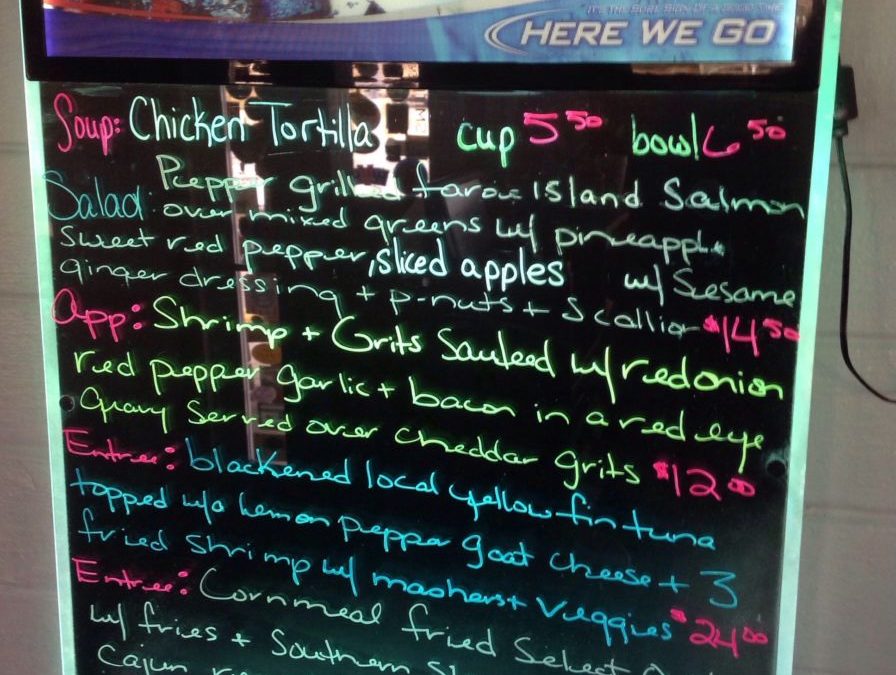 IT'S THE SURE SIGN OF A GOOD TIME
HERE WE GO
Soup: Chicken Tortilla cup 5 50 bowl 6 50
Salad: Pepper grilled faroe Island Salmon
over mixed greens w/ pineapple
sweet red pepper, sliced apples w/ Seesame
ginger dressing + p-nuts + Scallion $14 50
App: Shrimp + Grits Sauteed w/ red onion
red pepper garlic + bacon in a red eye
gravy Served over cheddar grits $12 00
Entree: blackened local yellowfin tuna
topped w/a lemon pepper goat cheese + 3
fried shrimp w/ mashers + veggies $24 00
Entree: Cornmeal fried Select
w/ fries + Southern
Cajun